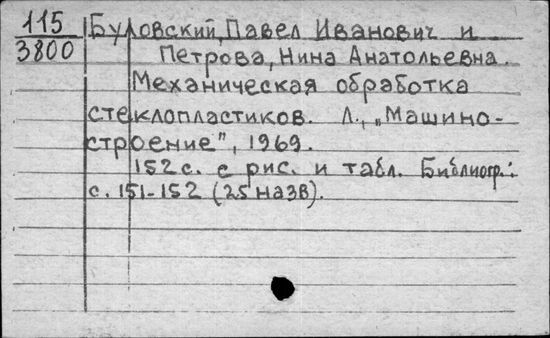 115
3800
Буловский, Павел Иванович и
Петрова, Нина Анатольевна.
Механическая обработка
стеклопластиков. Л., „Машино-
строение", 1969.
152 с. с рис. и табл. Библиогр.:
с. 151-152 (25 назв).